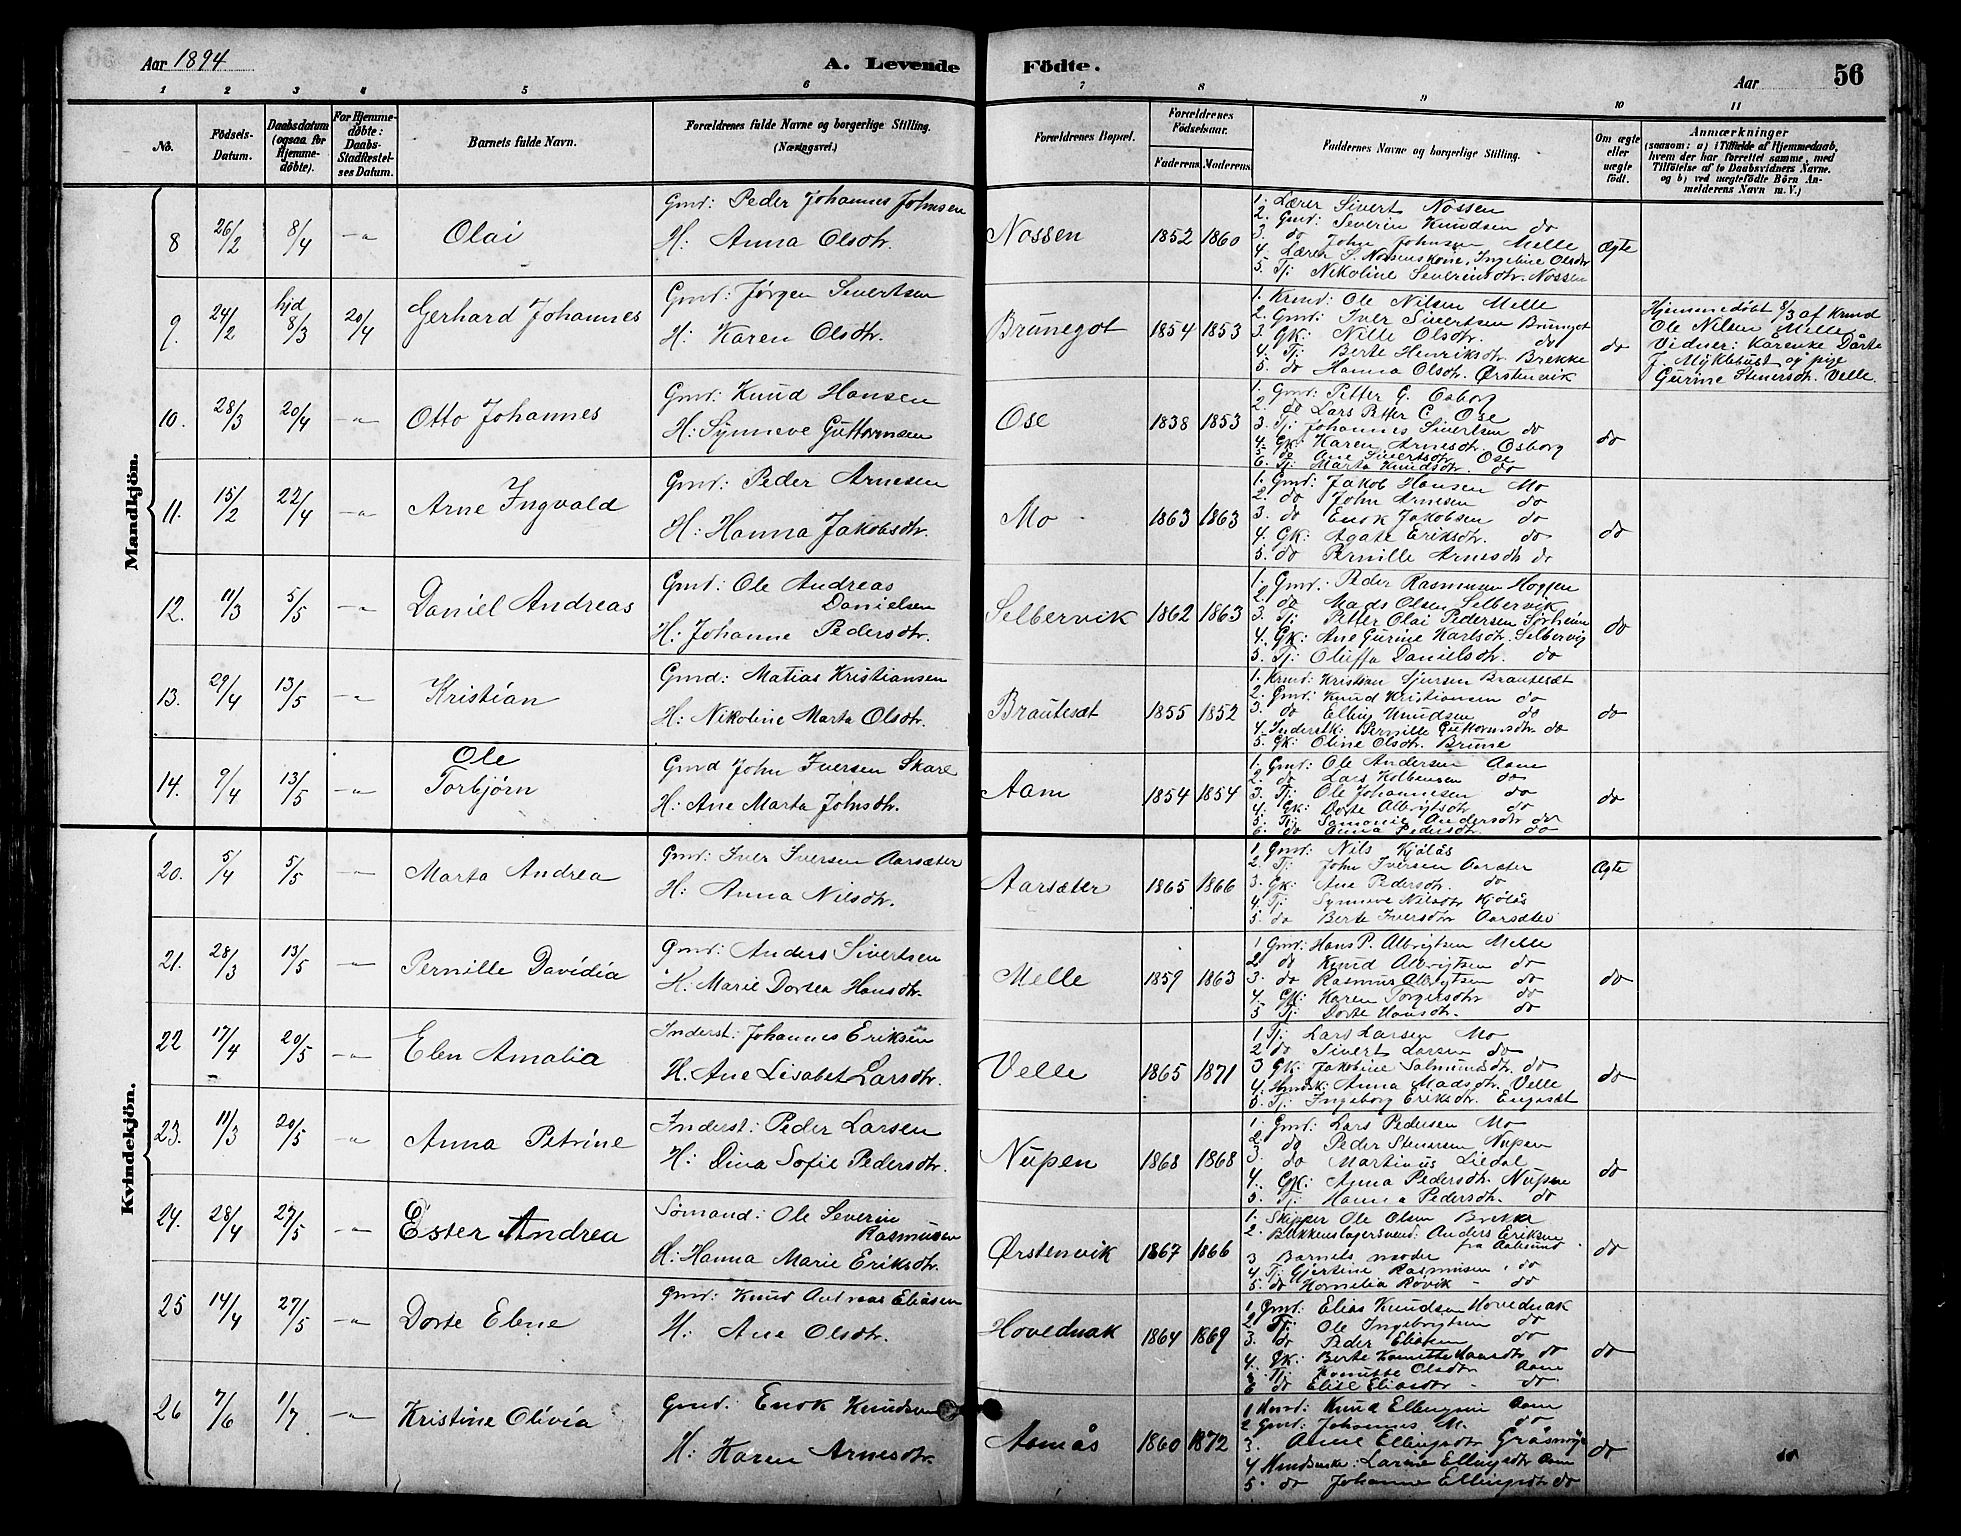 Aar 1894
A. Levende Födte.
Aar
56
1 2 3 4 5 6 7 8 9 10 11
No.
Födsels-Datum.
Daabsdatum (ogsaa for Hjemmedöbte).
For Hjemmedöbte: Daabs-Stadfæstelses Datum.
Barnets fulde Navn.
Forældrenes fulde Navne og borgerlige Stilling.
(Næringsvei.)
Forældrenes Bopæl.
Forældrenes Födselsaar.
Faderens. Moderens.
Faddernes Navne og borgerlige Stilling.
Om ægte eller uægte født.
Anmærkninger
(saasom: a) i Tilfælde af Hjemmedaab,
hvem der har forrettet samme, med
Tilföielse af to Daabsvidners Navne.
og b) ved uægtefödte Börn Anmelderens Navn m. V.)
Mandkjön.
8 26/2 8/4 -"- Olai
Gmd: Peder Johannes Johnsen
H: Anna Olsdtr.
Nossen 1852 1860
1. Lærer Sivert Nossen
2. Gmd: Severin Knudsen do
3. do John Johnsen Melle
4. Lærer S. Nossens kone, Ingeline Olsdtr
5. Tj: Nikoline Severinsdtr. Nossen
Ægte
9. 24/2 hjd 8/3 20/4 Gerhard Johannes
Gmd: Jørgen Sivertsen
H: Karen Olsdtr.
Brunegot 1854 1853
1. Krmd: Ole Nilsen Melle
2. Gmd: Iver Sivertsen Brunegot
3. GK: Nille Olsdtr. do
4. Tj: Berte Henriksdtr. Brekke
5. do Hanna Olsdtr. Ørstenvik
do
Hjemmedøbt 8/3 af Krmd
Ole Nilsen Melle
Vidner: Karenke Dårte
J. Myklebust og pige
Gurine Steners­dtr. Velle.
10. 28/3 20/4 -"- Otto Johannes
Gmd: Knud Hansen
H: Synneve Guttormsen
Ose 1838 1853
1. Gmd: Petter G. Osborg
2. do Lars Petter C. Ose
3. Tj: Johannes Sivertsen do
4. GK: Karen Arnesdtr. Osborg
5. do Ane Sivertsdtr. Ose
6. Tj: Marta Knudsdtr. do
do
11. 15/2 22/4 -"- Arne Ingvald
Gmd: Peder Arnesen
H: Hanna Jakobsdtr.
Mo 1863 1863
1. Gmd: Jakob Hansen Mo
2. do John Arnesen do
3. do Enok Jakobsen do
4. GK: Agate Eriksdtr. do
5. do Pernille Arnesdtr do
do
12. 11/3 5/5 -"- Daniel Andreas
Gmd: Ole Andreas
Danielsen
H: Johanne Pedersdtr.
Selbervik 1862 1863
1. Gmd: Peder Rasmussen Hoggen
2. do Mads Olsen Selbervik
3. Tj: Petter Olai Pedersen Sørheim
4. GK: Ane Gurine Karlsdtr. Selbervig
5. Tj: Oluffa Danielsdtr. do
do
13. 29/4 13/5 -"- Kristian
Gmd: Matias Kristiansen
H: Nikoline Marta Olsdtr.
Brautesæt 1855 1852
1. Krmd: Kristian Sjursen Brautesæt
2. Gmd: Knud Kristiansen do
3. do Elling Knudsen do
4. Inderstk: Pernille Guttormsdtr. do
5. GK: Oline Olsdtr. Brune
do
14. 9/4 13/5 -"- Ole
Torbjørn
Gmd John Iversen Skare
H: Ane Marta Johnsdtr.
Aam 1854 1854
1. Gmd: Ole Andersen Aam
2. do Lars Kolbensen do
3. Tj: Ole Johannesen do
4. GK: Dorte Albrigtsdtr do
5. Tj: Samonie Andersdtr do
6. do Anna Pedersdtr. do
do
Kvindekjön.
20. 5/4 5/5 -"- Marta Andrea
Gmd: Iver Iversen Aarsæter
H: Anna Nilsdtr.
Aarsæter 1865 1866
1. Gmd: Nils Kjølås
2. Tj: John Iversen Aarsæter
3. GK: Ane Pedersdtr. do
4. Tj: Synneve Nilsdtr Kjølås
5. do Berte Iversdtr Aarsæter
Ægte
21. 28/3 13/5 -"- Pernille Davidia
Gmd: Anders Sivertsen
H: Marie Dortea Hansdtr.
Melle 1859 1863
1 Gmd: Hans P. Albrigtsen Melle
2 do Knud Albrigtsen do
3. do Rasmus Albrigtsen do
4. GK: Karen Torgersdtr do
5 Tj: Dorte Hansdtr. do
do
22 17/4 20/5 -"- Elen Amalia
Inderst: Johannes Eriksen
H. Ane Lisabet Larsdtr.
Velle 1865 1871
1 Tj: Lars Larsen Mo
2 do Sivert Larsen do
3 GK: Jakobine Salmundsdtr. do
4. Kmdsk: Anna Madsdtr. Velle
5. Tj: Ingeborg Eriksdtr. Engesæt
do
23. 11/3 20/5 -"- Anna Petrine
Inderst: Peder Larsen
H: Dina Sofie Pedersdtr.
Nupen 1868 1868
1. Gmd: Lars Pedersen Mo
2. do Peder Stenersen Nupen
3. do Martinus Liedal
4. GK: Anna Pedersdtr. Nupen
5. Tj: Hanna Pedersdtr. do
do
24. 28/4 27/5 -"- Ester Andrea
Sømand: Ole Severin
Rasmussen
H: Hanna Marie Eriksdtr.
Ørstenvik 1867 1866
1. Skipper Ole Olsen Brekke
2. Blikkenslagersvend: Anders Eriksen
fra Aalesund
3 Barnets moder
4 Tj: Gjertine Rasmusen do
5. do Kornelia Røvik - do
do
25 14/4 27/5 -"- Dorte Elene
Gmd: Knud Andreas Eliasen
H: Ane Olsdtr.
Hovednak 1864 1869
1 Gmd: Elias Knudsen Hovednak
2 Tj: Ole Ingebrigtsen do
3. do Peder Eliasen do
4. GK: Berte Hansdtr do
5 Tj: Olsdtr Aam
6 do Elise Eliasdtr - do
do
26 7/6 1/7 -"- Kristine Olivia
Gmd: Enok Knudsen
H: Karen Arnesdtr.
Aamås 1860 1872
1 Krmd: Knud Ellingsen Aam
2 Gmd: Johannes M. do
3. Anne Ellingsdtr Gråsøye
4 Larine Ellingsdtr Aam
5. do Johanne Ellingsdtr do
do